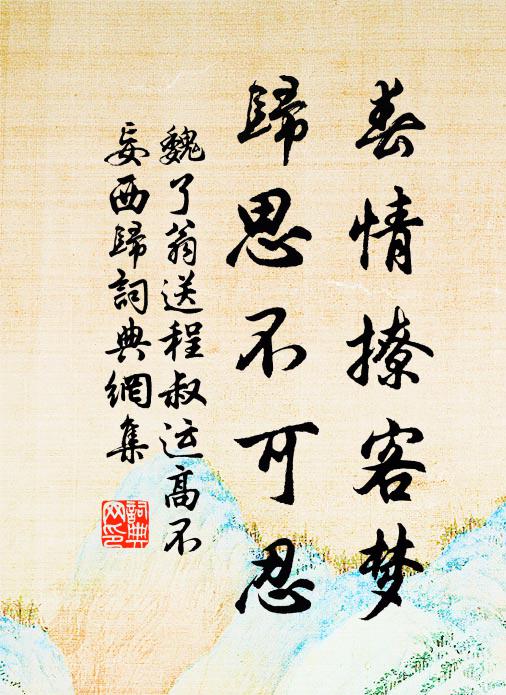 春情撩客梦
歸思不可忍
魏了翁送程叔运高不
妄西歸詞典網集
詞典
网印